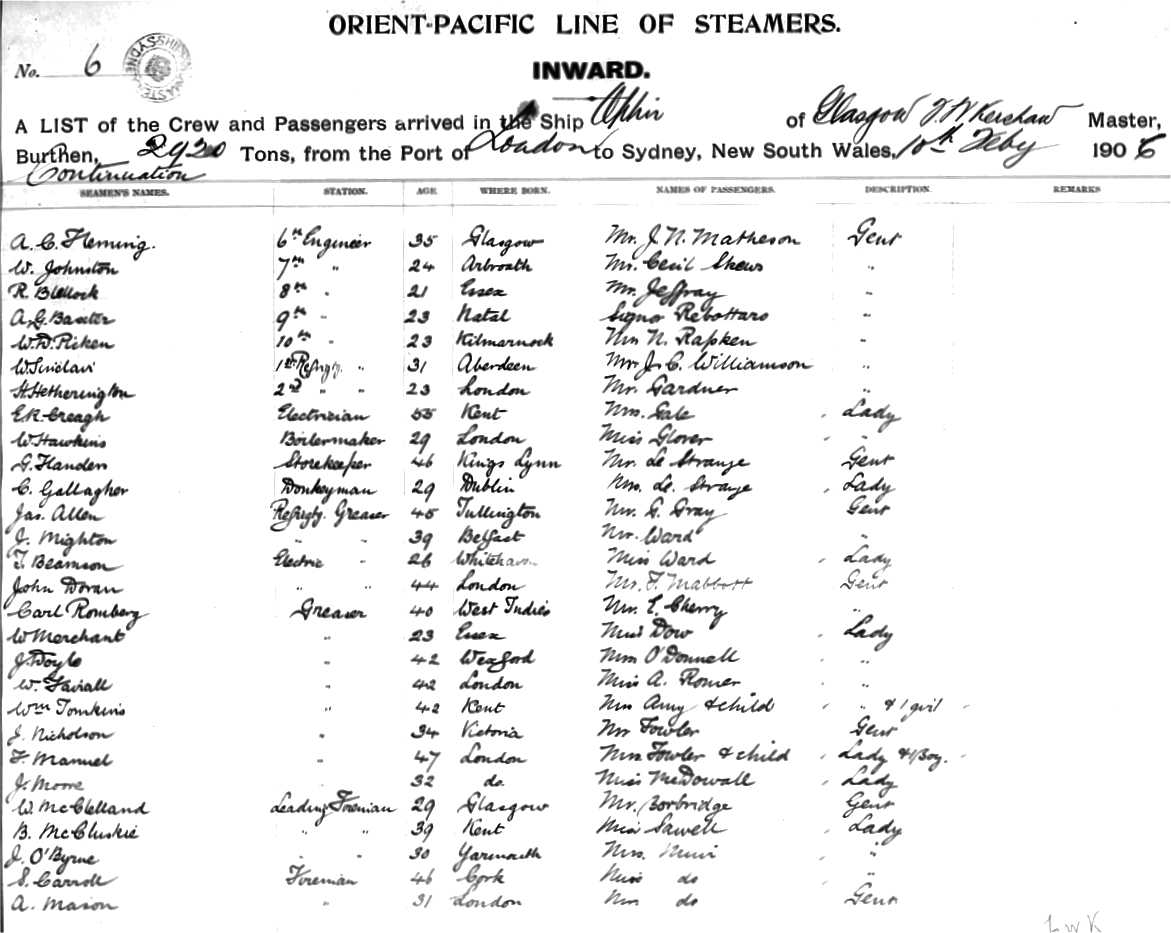 ORIENT-PACIFIC LINE OF STEAMERS.
No. 6
INWARD.
A LIST of the Crew and Passengers arrived in the Ship Ophir of Glasgow J. W Kershaw Master,
Burthen, 2920 Tons, from the Port of London to Sydney, New South Wales, 10th Feby 1906
Continuation
SEAMEN'S NAMES. STATION. AGE WHERE BORN. NAMES OF PASSENGERS. DESCRIPTION. REMARKS
A. C. Fleming. 6th Engineer 35 Glasgow Mr. J. N. Matheson Gent
W. Johnston 7th " 24 Arbroath Mr. Cecil Skews "
R. Blellock 8th " 21 Essex Mr. Jeffray "
A. G. Baxter 9th " 23 Natal Signor Rebottaro "
W. D. Picken 10th " 23 Kilmarnock N. Rapken "
W Sinclair 1st Refrigtg. " 31 Aberdeen Mr J. C. Williamson "
H. Hetherington 2nd " " 23 London Mr. Gardner "
E.R. Creagh Electrician 55 Kent Mrs. Gale Lady
W. Hawkins Boilermaker 29 London Miss Glover "
G. Flanders Storekeeper 46 Kings Lynn Mr. Le Strange Gent
C. Gallagher Donkeyman 29 Dublin Mrs. Le. Strange Lady
Jas. Allen Refrigtg. Greaser 45 Tullington Mr. G. Gray Gent
J. Mighton " " 39 Belfast Mr. Ward "
T. Beamson Electric " 26 Miss Ward Lady
John Doran " " 44 London Mr. F. Mabbott Gent
Carl Romberg Greaser 40 West Indies Mr. E. Cherry "
W Merchant " 23 Essex Miss Dow Lady
J. Doyle " 42 Wexford Mrs O'Donnell "
W. " 42 London Miss A. Romer "
Wm Tomkins " 42 Kent Mrs Amy & child " & 1 girl
J. Nicholson " 34 Victoria Mr Fowler Gent
F. Manuel " 47 London Mrs Fowler & child Lady & 1 Boy.
J. Moore 32 do. Miss McDowall Lady
W. McClelland Leading Fireman 29 Glasgow Mr. Borbridge Gent
B. McCluskie " " 39 Kent Miss Sawell Lady
J. O'Byrne " " 30 Yarmouth Mrs. Muir "
S. Carroll Fireman 46 Cork Miss do "
A. Mason " 31 London Mr do Gent